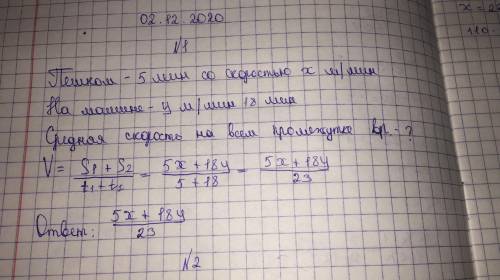 02.12.2020
x = 23
№1
110
Пешком - 5 мин со скоростью x м/мин
На машине - y м/мин 18 мин
Средная скорость на всем промежутке вр. - ?
V = (S1 + S2)/(t1 + t2) = (5x + 18y)/(5 + 18) = (5x + 18y)/23
Ответ: (5x + 18y)/23
№2